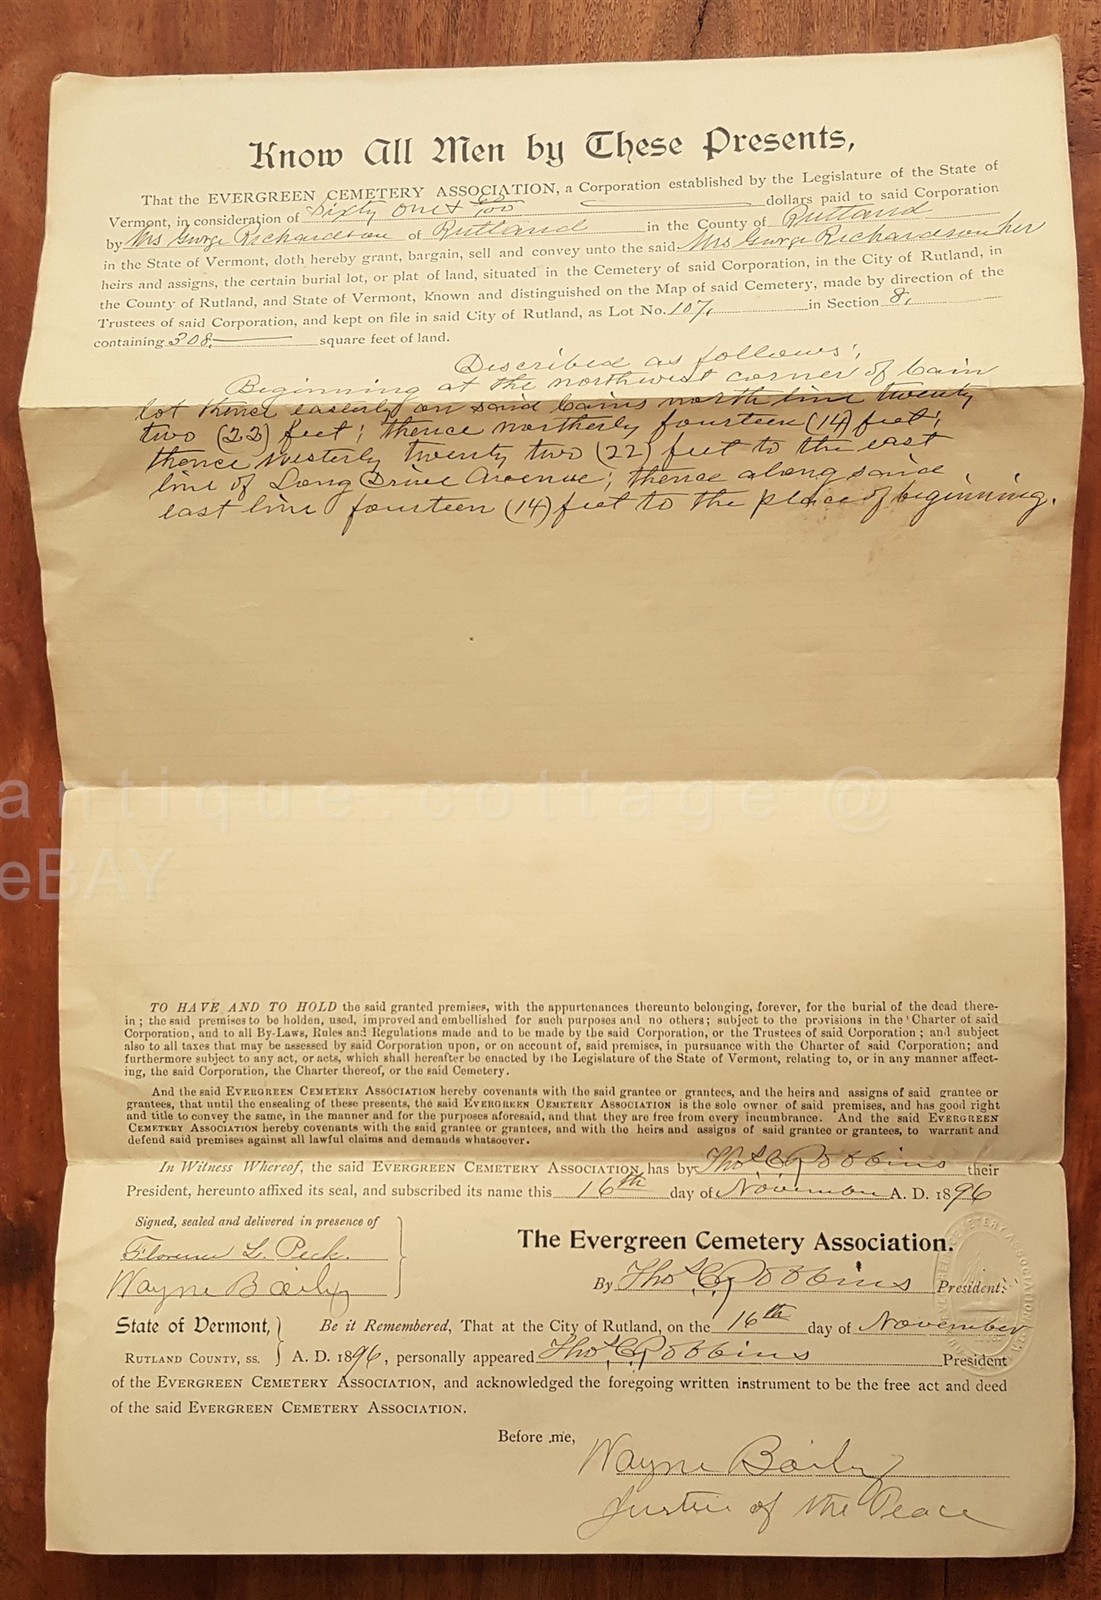 Know All Men by These Presents,
That the EVERGREEN CEMETERY ASSOCIATION, a Corporation established by the Legislature of the State of
Vermont, in consideration of Sixty One & 60/100 dollars paid to said Corporation
by Mrs George Richardson of Rutland in the County of Rutland
in the State of Vermont, doth hereby grant, bargain, sell and convey unto the said Mrs George Richardson her
heirs and assigns, the certain burial lot, or plat of land, situated in the Cemetery of said Corporation, in the City of Rutland, in
the County of Rutland, and State of Vermont, Known and distinguished on the Map of said Cemetery, made by direction of the
Trustees of said Corporation, and kept on file in said City of Rutland, as Lot No. 107, in Section 8,
containing 308, square feet of land.
Described as follows;
Beginning at the northwest corner of Cain
lot thence easterly on said Cains north line twenty
two (22) feet; thence northerly fourteen (14) feet;
thence westerly twenty two (22) feet to the east
line of Long Drive Avenue; thence along said
east line fourteen (14) feet to the place of beginning.
antique.cottage@
eBAY
TO HAVE AND TO HOLD the said granted premises, with the appurtenances thereunto belonging, forever, for the burial of the dead there-
in; the said premises to be holden, used, improved and embellished for such purposes and no others; subject to the provisions in the Charter of said
Corporation, and to all By-Laws, Rules and Regulations made and to be made by the said Corporation, or the Trustees of said Corporation; and subject
also to all taxes that may be assessed by said Corporation upon, or on account of, said premises, in pursuance with the Charter of said Corporation; and
furthermore subject to any act, or acts, which shall hereafter be enacted by the Legislature of the State of Vermont, relating to, or in any manner affect-
ing, the said Corporation, the Charter thereof, or the said Cemetery.
And the said EVERGREEN CEMETERY ASSOCIATION hereby covenants with the said grantee or grantees, and the heirs and assigns of said grantee or
grantees, that until the ensealing of these presents, the said EVERGREEN CEMETERY ASSOCIATION is the sole owner of said premises, and has good right
and title to convey the same, in the manner and for the purposes aforesaid, and that they are free from every incumbrance. And the said EVERGREEN
CEMETERY ASSOCIATION hereby covenants with the said grantee or grantees, and with the heirs and assigns of said grantee or grantees, to warrant and
defend said premises against all lawful claims and demands whatsoever.
In Witness Whereof, the said EVERGREEN CEMETERY ASSOCIATION, has by Thos C Robbins their
President, hereunto affixed its seal, and subscribed its name this 16th day of November A. D. 1896
Signed, sealed and delivered in presence of
Florence L. Peck.
Wayne Bailey
The Evergreen Cemetery Association.
By Thos. C. Robbins President.
State of Vermont,
RUTLAND COUNTY, ss.
Be it Remembered, That at the City of Rutland, on the 16th day of November
A. D. 1896, personally appeared Thos. C. Robbins President
of the EVERGREEN CEMETERY ASSOCIATION, and acknowledged the foregoing written instrument to be the free act and deed
of the said EVERGREEN CEMETERY ASSOCIATION.
Before me,
Wayne Bailey
Justice of the Peace